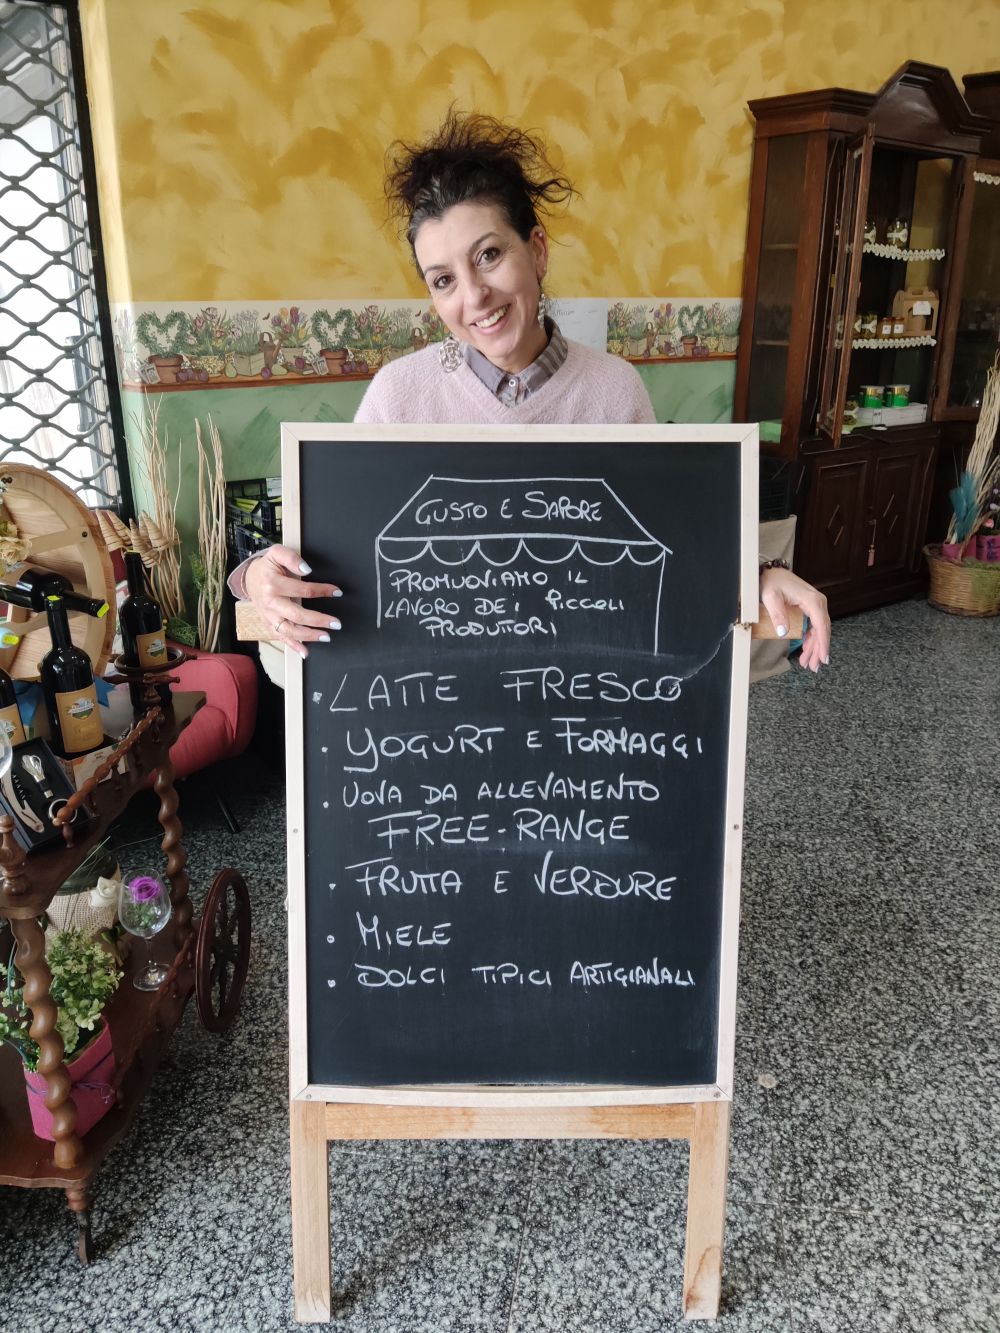 GUSTO E SAPORE
PROMUOVIAMO IL
LAVORO DEI PICCOLI
PRODUTTORI
• LATTE FRESCO
• YOGURT E FORMAGGI
• UOVA DA ALLEVAMENTO
FREE-RANGE
• FRUTTA E VERDURE
• MIELE
• DOLCI TIPICI ARTIGIANALI